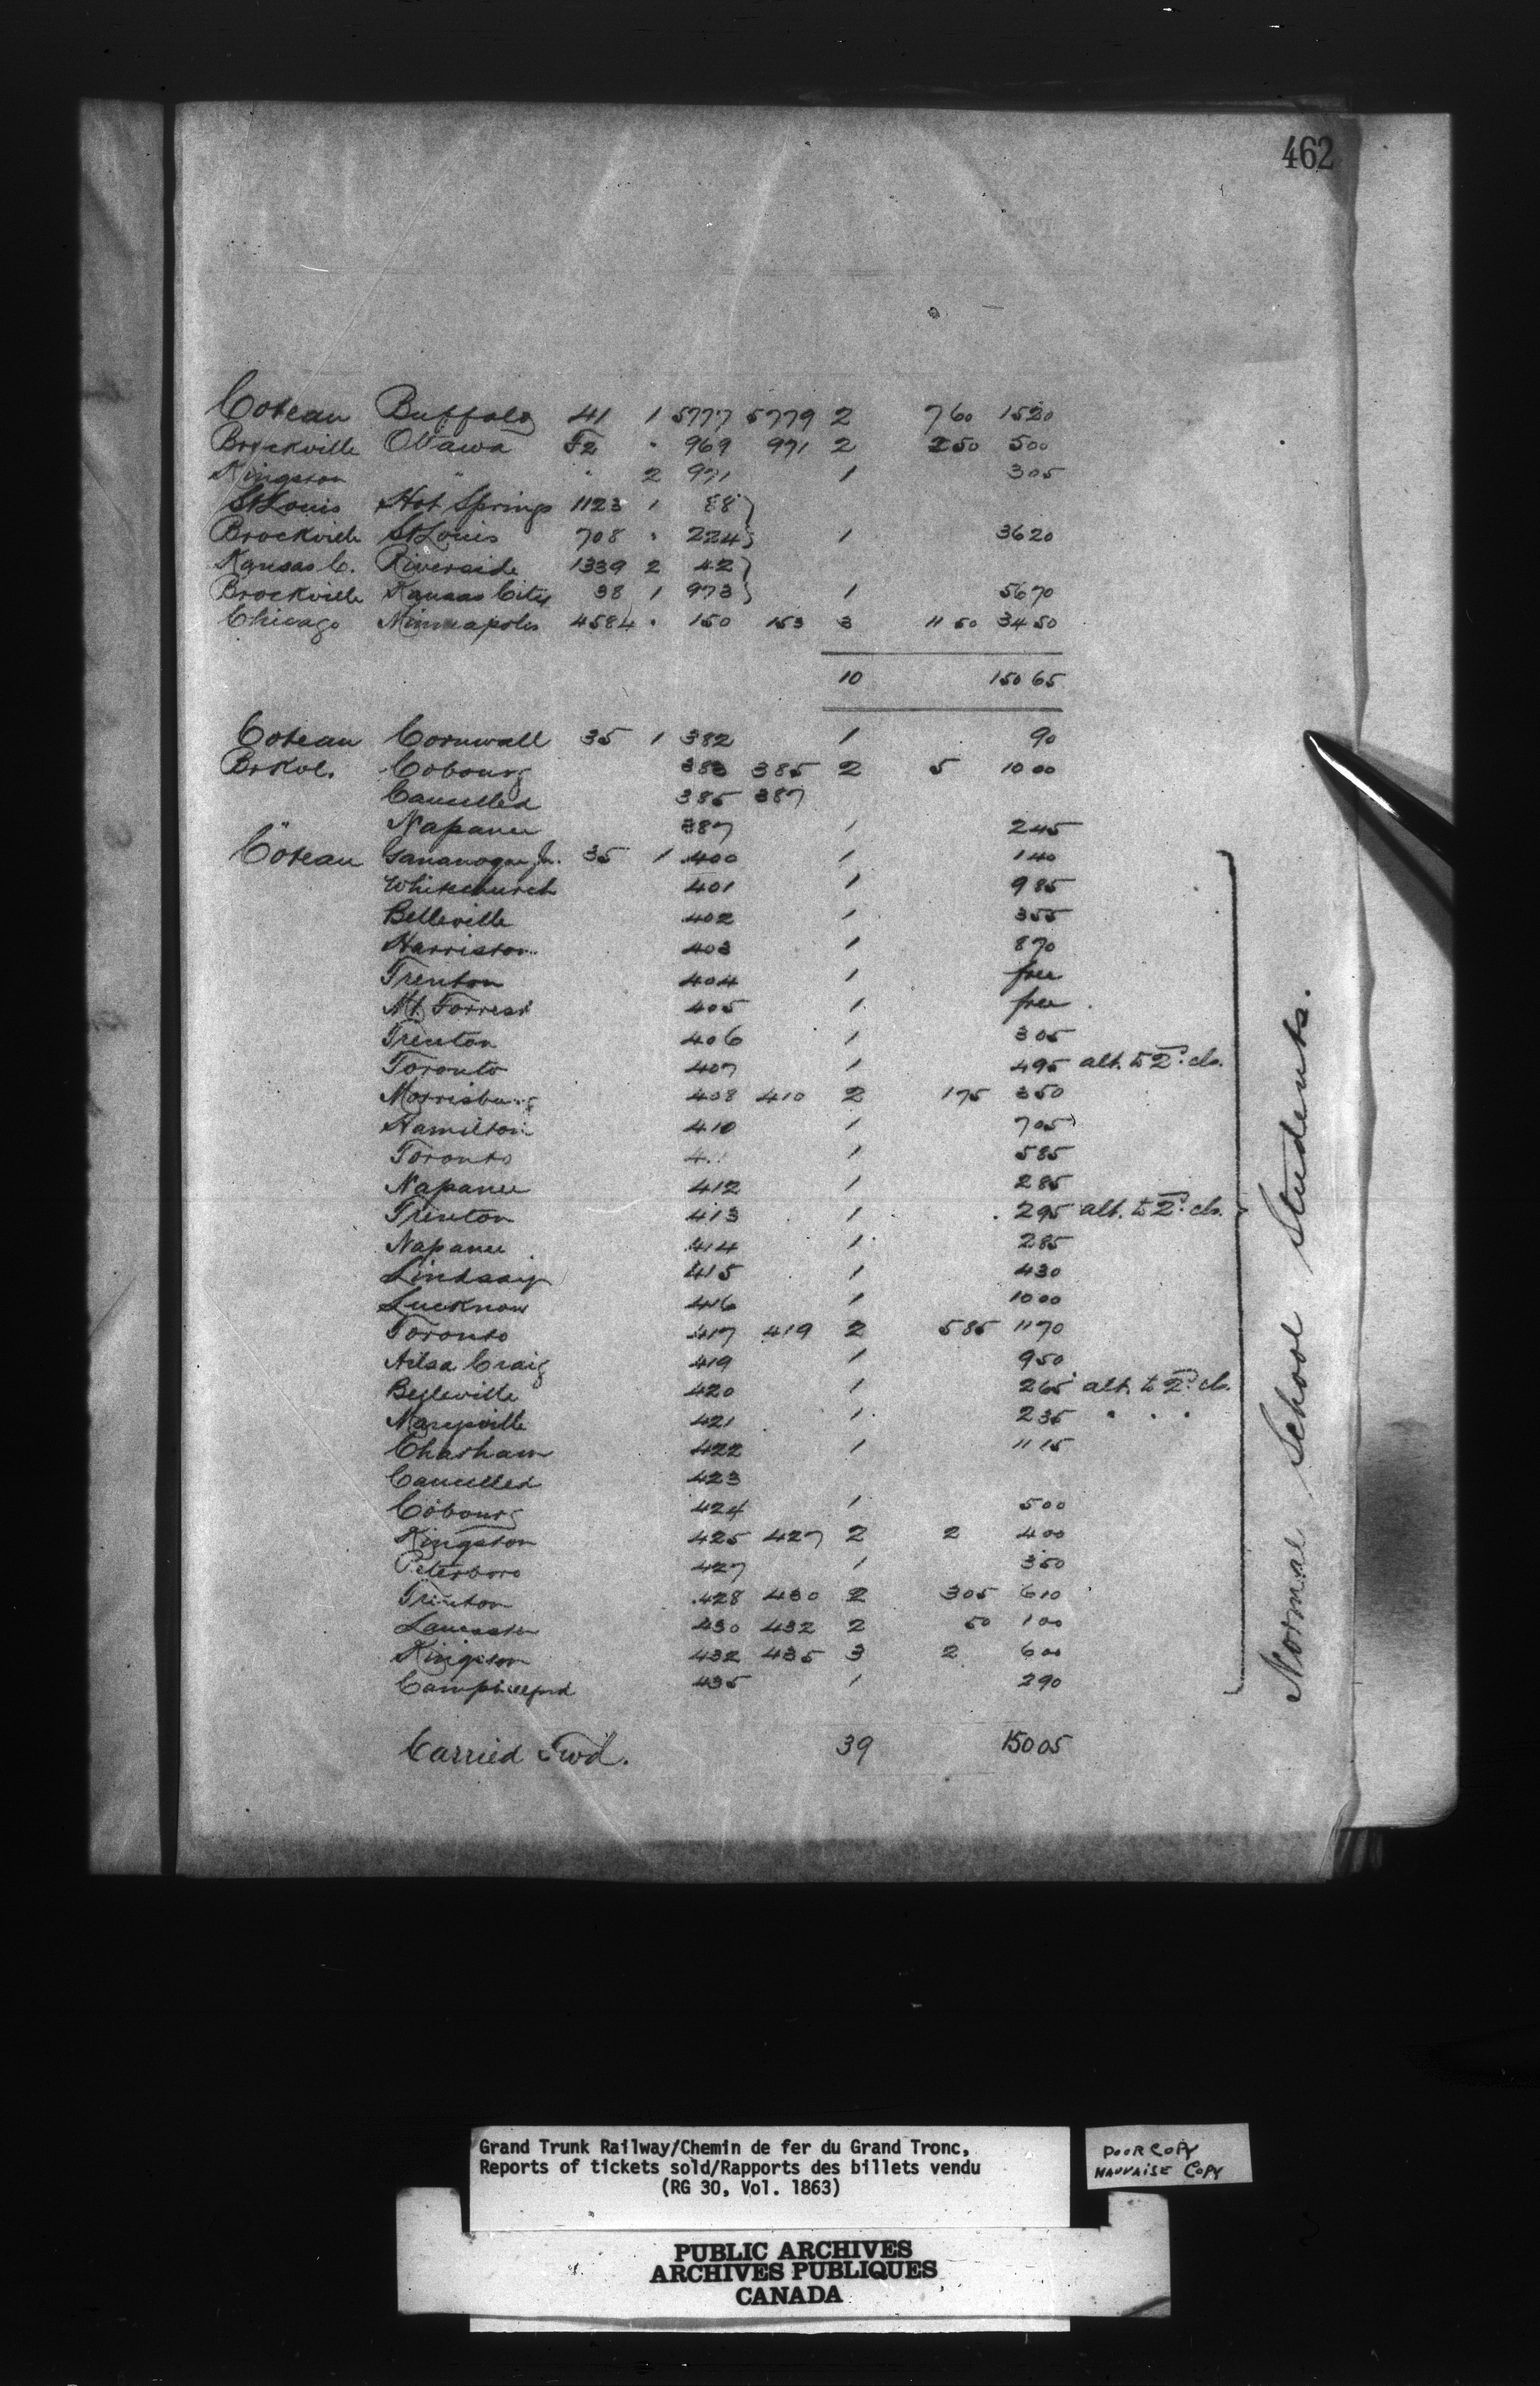 462
Coteau Buffalo 41 1 5777 5779 2 760 1520
Brockville Ottawa F2 " 969 971 2 250 500
Kingston " " 2 971 1 305
St Louis Hot Springs 1123 1 88 }
Brockville St Louis 708 " 224 } 1 3620
Kansas C. Riverside 1339 2 42 }
Brockville Kansas City 38 1 973 } 1 5670
Chicago Minneapolis 4584 " 150 153 3 11 50 34 50
10 150 65
Coteau Cornwall 35 1 382 1 90
Brkvl. Cobourg 383 385 2 5 10 00
Cancelled 385 387
" Napanee 387 1 245
Coteau Gananoque Jn. 35 1 400 1 140
Whitechurch 401 1 985
Belleville 402 1 355
Harriston 403 1 870
Trenton 404 1 free
Mt Forrest 405 1 free
Trenton 406 1 305
Toronto 407 1 495 alt. to 2d. cls.
Morrisburg 408 410 2 175 350
Hamilton 410 1 705
Toronto 4 1 585
Napanee 412 1 285
Trenton 413 1 295 alt. to 2d. cls.
Napanee 414 1 285
Lindsay 415 1 430
Lucknow 416 1 10 00
Toronto 417 419 2 585 11 70
Ailsa Craig 419 1 950
Belleville 420 1 265 alt. to 2d. cls.
Marysville 421 1 235 " " "
Chatham 422 1 11 15
Cancelled 423
Cobourg 424 1 500
Kingston 425 427 2 2 400
Peterboro 427 1 350
Trenton 428 430 2 305 610
Lancaster 430 432 2 50 100
Kingston 432 435 3 2 600
Campbellford 435 1 290
Carried Fwd. 39 150 05
Normal School Students.
Grand Trunk Railway/Chemin de fer du Grand Tronc,
Reports of tickets sold/Rapports des billets vendu
(RG 30, Vol. 1863)
POOR COPY
MAUVAISE COPY
PUBLIC ARCHIVES
ARCHIVES PUBLIQUES
CANADA